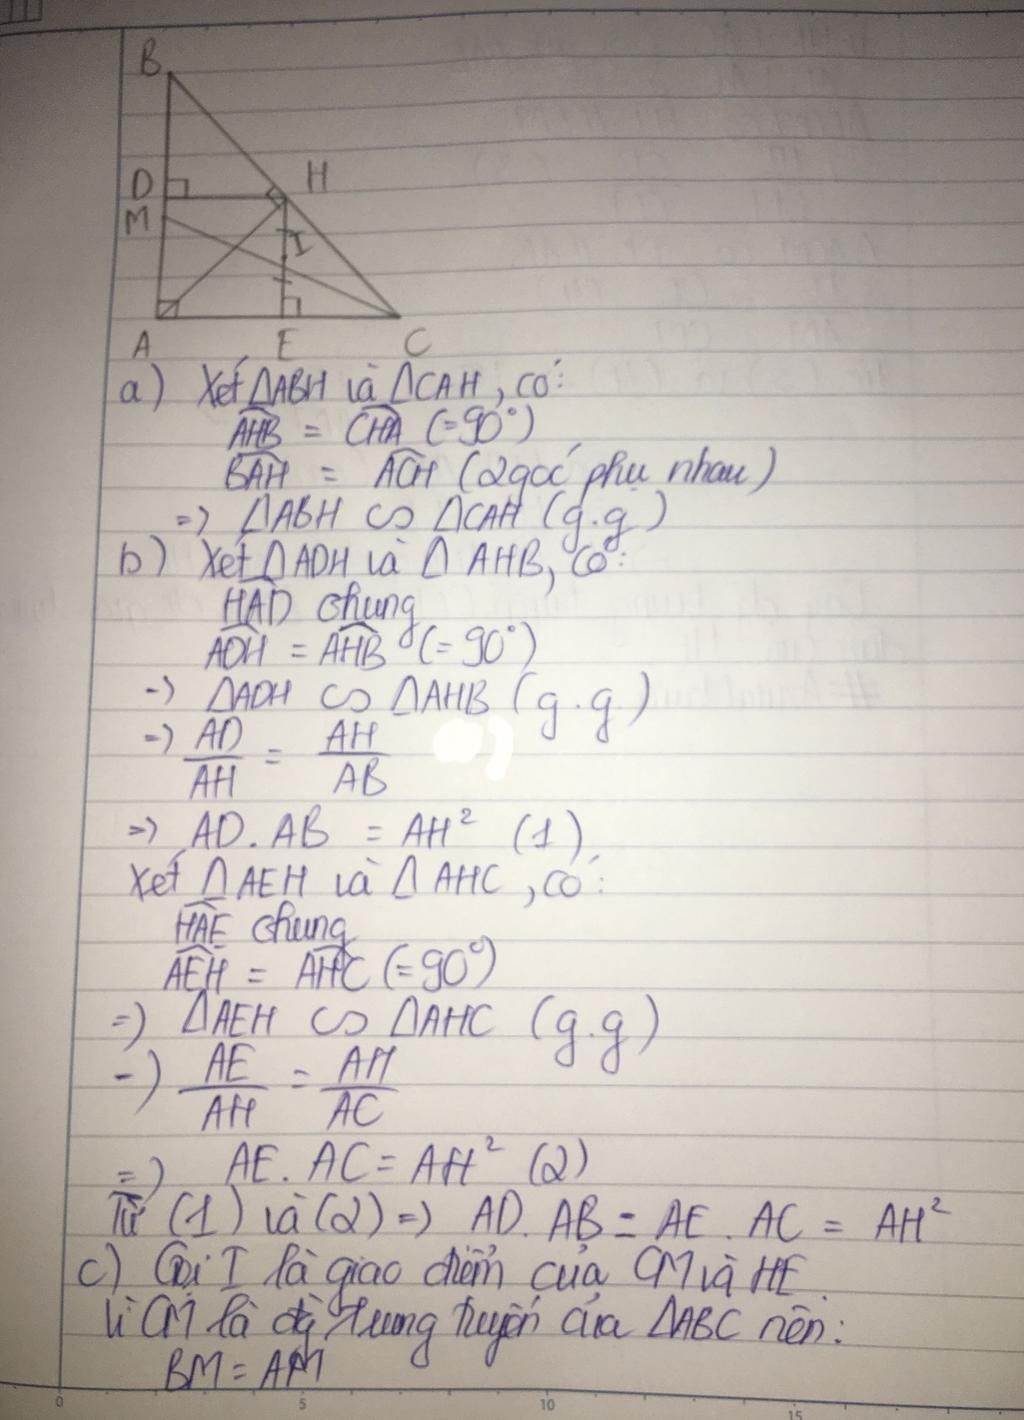 B
D
H
M
I
A E C
a) Xét ΔABH và ΔCAH, có:
AHB = CHA (=90°)
BAH = ACH (2 góc phụ nhau)
=> ΔABH ∽ ΔCAH (g.g)
b) Xét ΔADH và ΔAHB, có:
HAD chung
ADH = AHB (=90°)
=> ΔADH ∽ ΔAHB (g.g)
=> AD/AH = AH/AB
=> AD.AB = AH² (1)
Xét ΔAEH và ΔAHC, có:
HAE chung
AEH = AHC (=90°)
=> ΔAEH ∽ ΔAHC (g.g)
=> AE/AH = AH/AC
=> AE.AC = AH² (2)
Từ (1) và (2) => AD.AB = AE.AC = AH²
c) Gọi I là giao điểm của CM và HE.
Vì CM là đg trung tuyến của ΔABC nên:
BM = AM
0 5 10 15